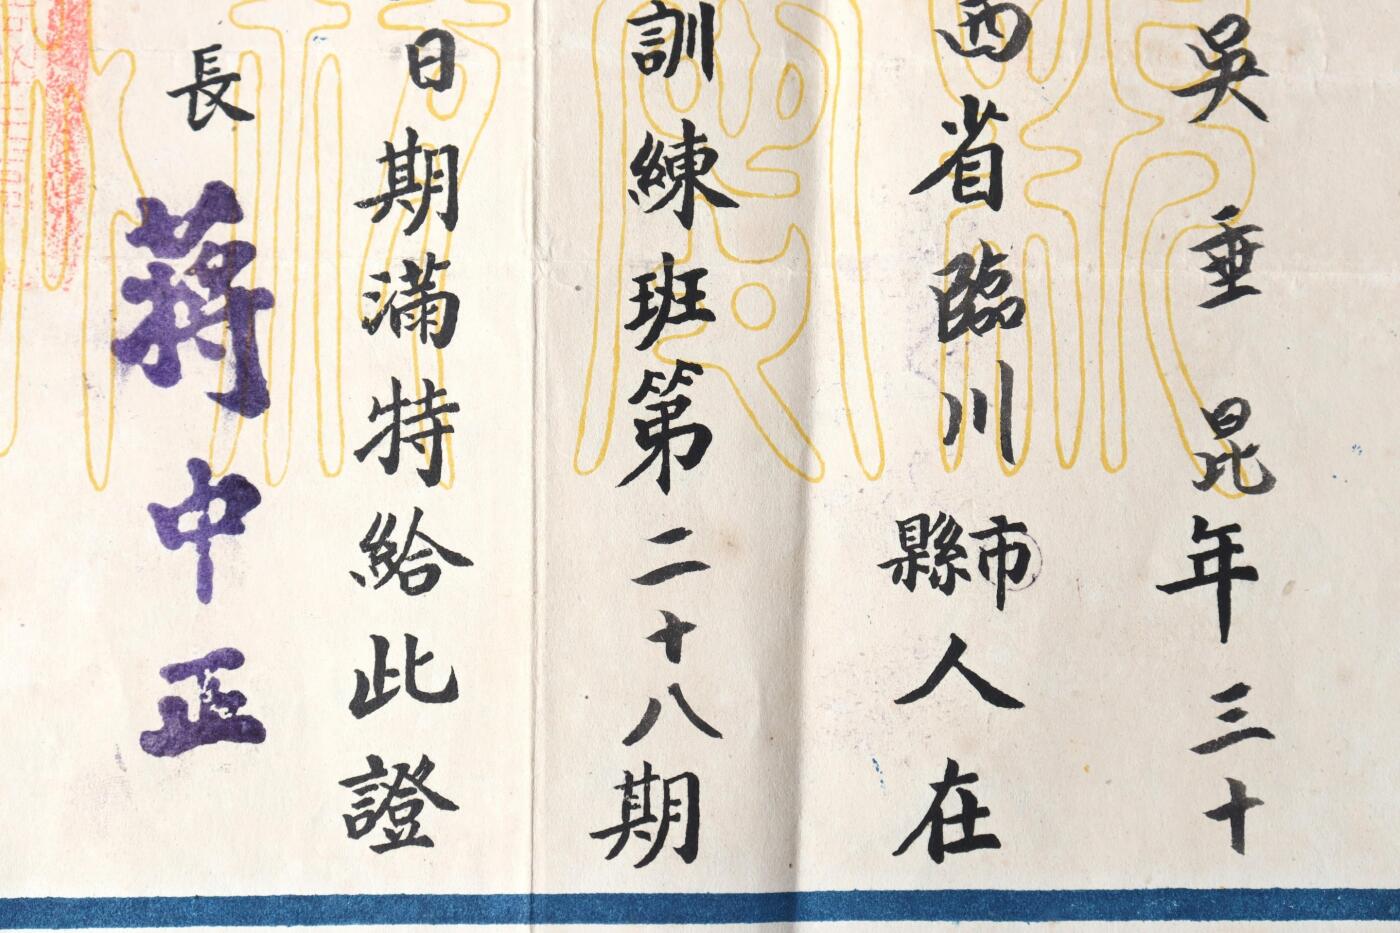 吳垂昆年三十
西省臨川縣市人在
訓練班第二十八期
日期滿特給此證
長蔣中正